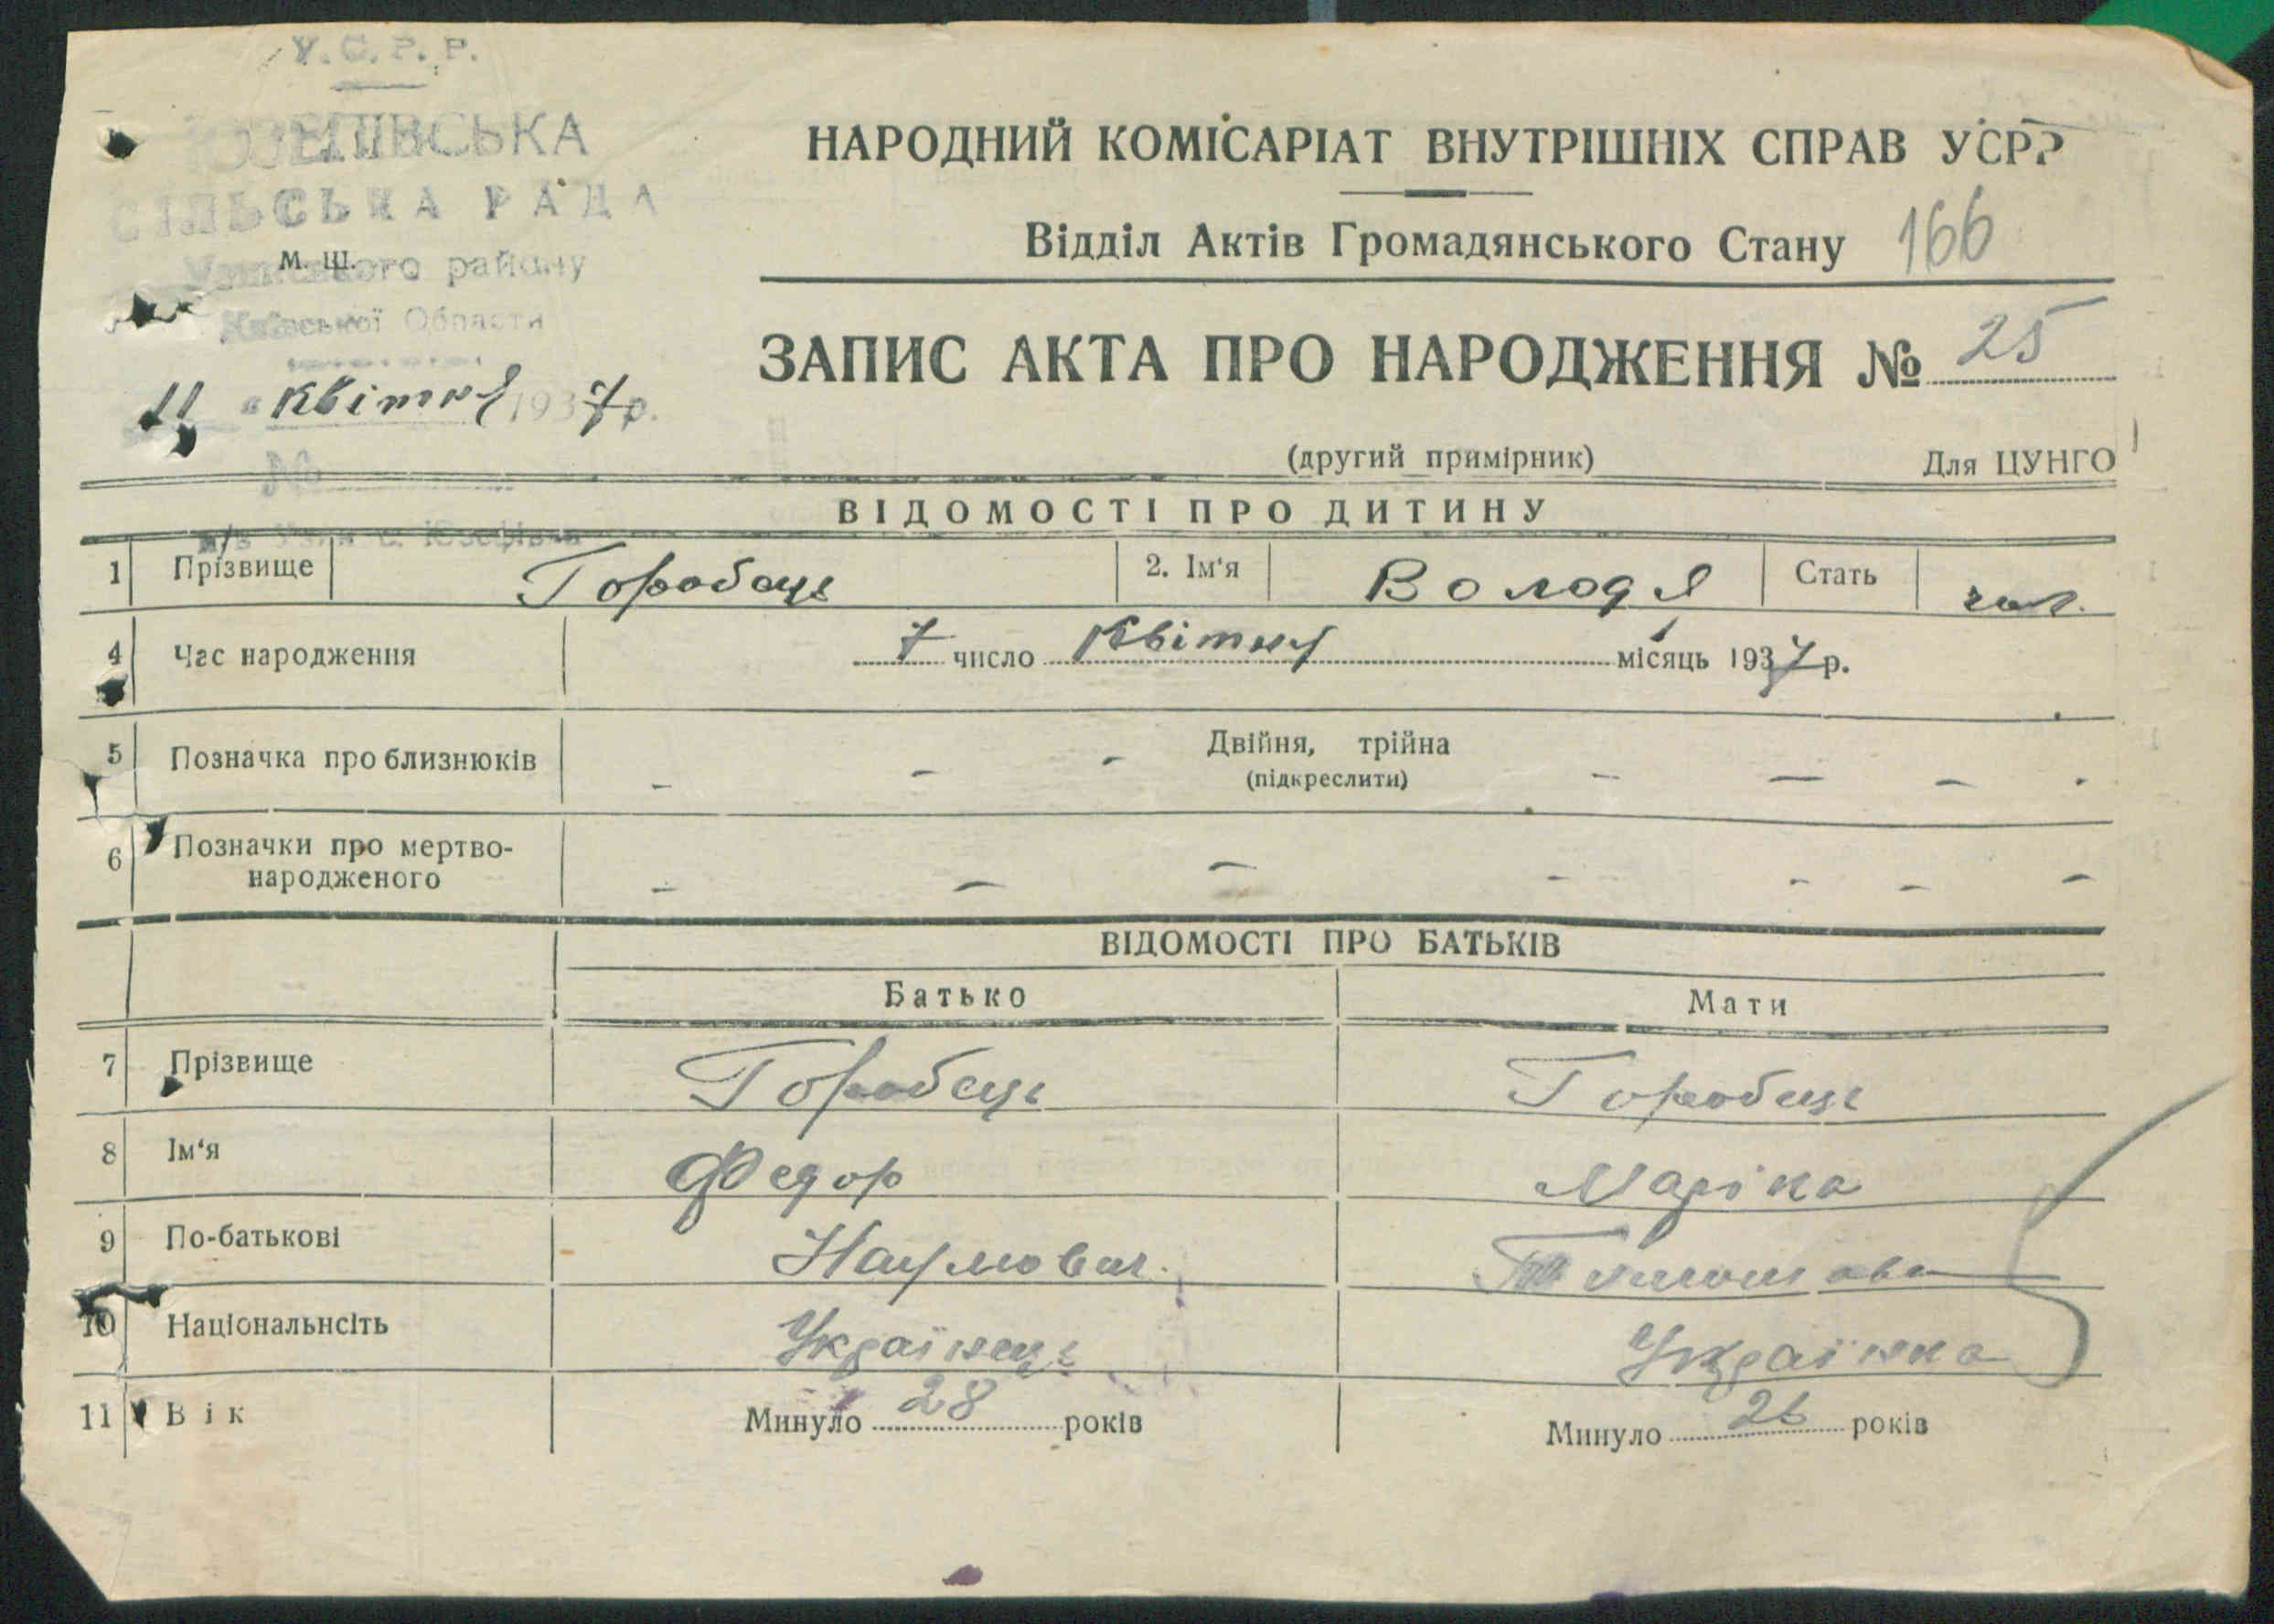 У.С.Р.Р.
СІЛЬСЬКА РАДА
М. Ш.
району
Київської Області
11 " квітня 1937 р.
№
НАРОДНИЙ КОМІСАРІАТ ВНУТРІШНІХ СПРАВ УСРР
Відділ Актів Громадянського Стану 166
ЗАПИС АКТА ПРО НАРОДЖЕННЯ № 25
(другий примірник) Для ЦУНГО
ВІДОМОСТІ ПРО ДИТИНУ
п/в Узин с. Юзефівка
1 Прізвище Горобець 2. Ім'я Володя Стать чол.
4 Час народження 7 число Квітня місяць 1937 р.
5 Позначка про близнюків - - - Двійня, трійна - - - -
(підкреслити)
6 Позначки про мертво-
народженого - - - - - - -
ВІДОМОСТІ ПРО БАТЬКІВ
Батько Мати
7 Прізвище Горобець Горобець
8 Ім'я Федор Маріка
9 По-батькові Наумович
10 Національнсіть Українець Українка
11 Вік Минуло 28 років Минуло 26 років